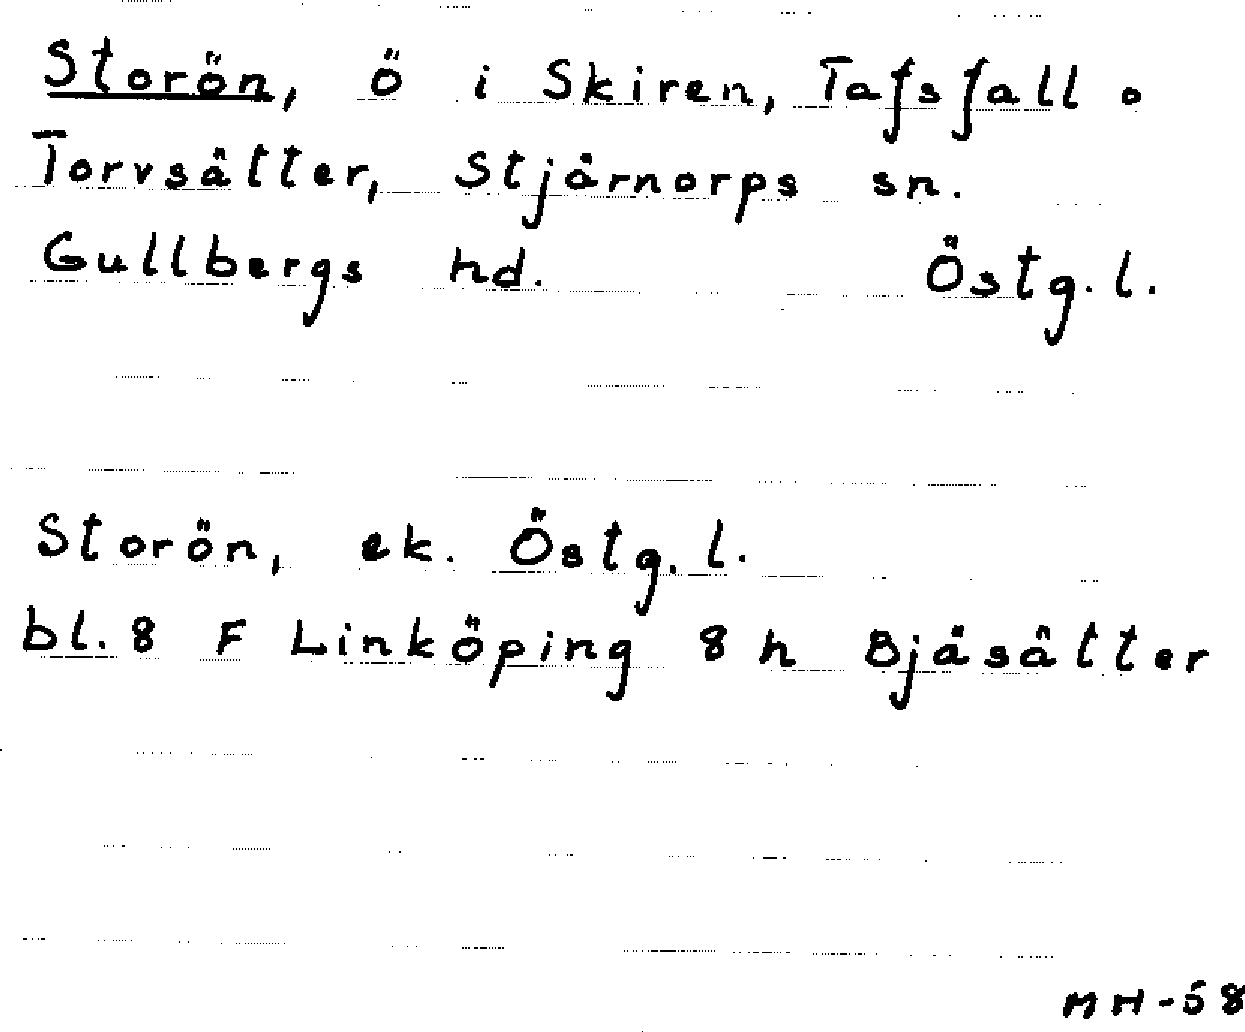 Storön, ö i Skiren, Tafsfall o
Torvsätter, Stjärnorps sn.
Gullbergs hd. Östg.l.
Storön, ek. Östg.l.
bl. 8 F Linköping 8 h Bjäsätter
MH-58